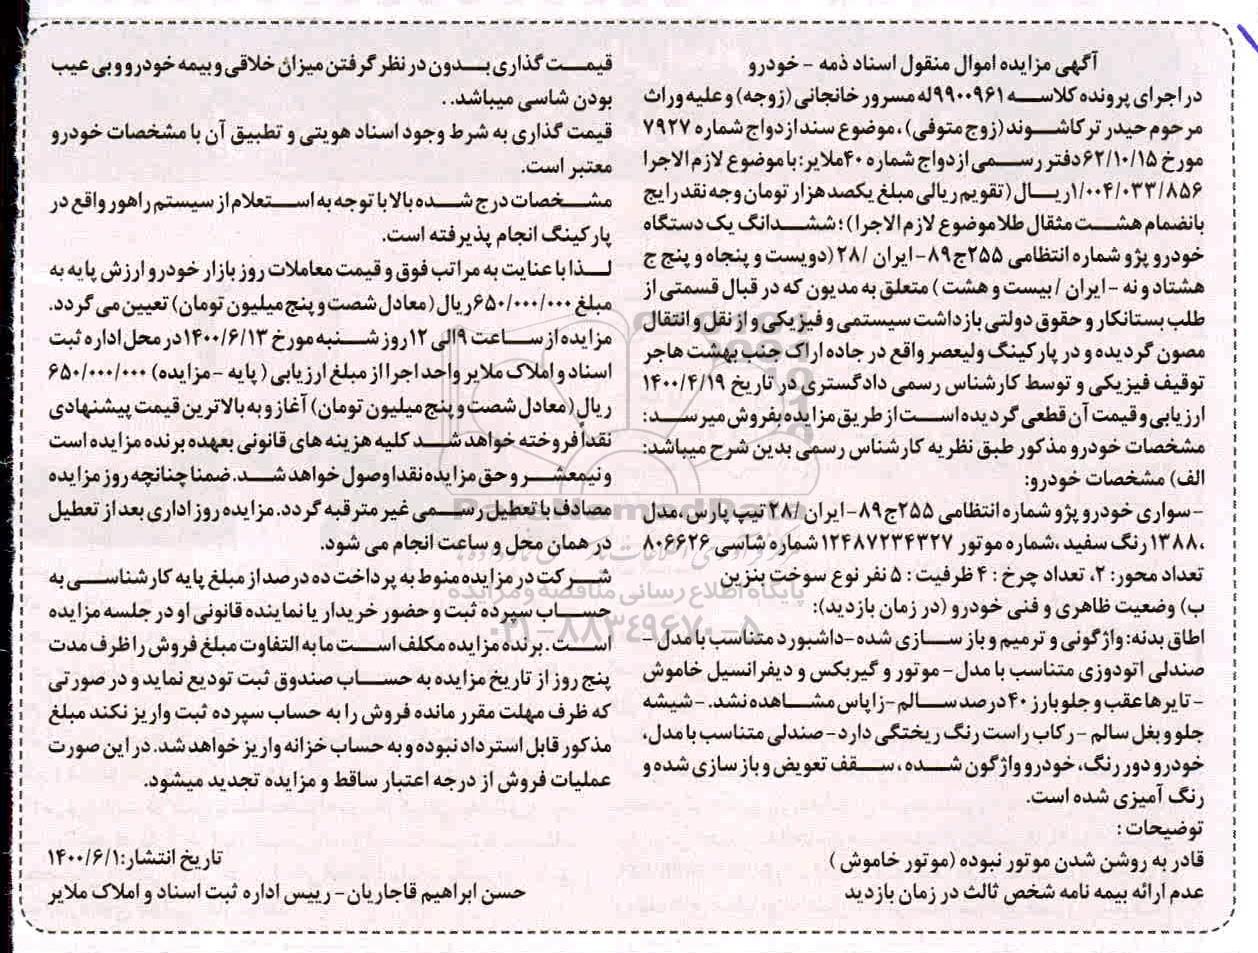 آگهی مزایده اموال منقول اسناد ذمه - خودرو
در اجرای پرونده کلاسه ۹۹۰۰۹۶۱ له مسرور خانجانی (زوجه) و علیه وراث
مرحوم حیدر ترکاشوند (زوج متوفی)، موضوع سند ازدواج شماره ۷۹۲۷
مورخ ۶۲/۱۰/۱۵ دفتر رسمی ازدواج شماره ۴۰ ملایر: با موضوع لازم الاجرا
۱/۰۰۴/۰۳۳/۸۵۶ ریال (تقویم ریالی مبلغ یکصد هزار تومان وجه نقد رایج
بانضمام هشت مثقال طلا موضوع لازم الاجرا)؛ ششدانگ یک دستگاه
خودرو پژو شماره انتظامی ۲۵۵ج۸۹-ایران /۲۸ (دویست و پنجاه و پنج ج
هشتاد و نه - ایران / بیست و هشت) متعلق به مدیون که در قبال قسمتی از
طلب بستانکار و حقوق دولتی بازداشت سیستمی و فیزیکی و از نقل و انتقال
مصون گردیده و در پارکینگ ولیعصر واقع در جاده اراک جنب بهشت هاجر
توقیف فیزیکی و توسط کارشناس رسمی دادگستری در تاریخ ۱۴۰۰/۴/۱۹
ارزیابی و قیمت آن قطعی گردیده است از طریق مزایده بفروش میرسد:
مشخصات خودرو مذکور طبق نظریه کارشناس رسمی بدین شرح میباشد:
الف) مشخصات خودرو:
-سواری خودرو پژو شماره انتظامی ۲۵۵ج۸۹-ایران /۲۸ تیپ پارس، مدل
۱۳۸۸، رنگ سفید، شماره موتور ۱۲۴۸۷۲۳۴۳۲۷ شماره شاسی ۸۰۶۶۲۶
تعداد محور: ۲، تعداد چرخ : ۴ ظرفیت : ۵ نفر نوع سوخت بنزین
ب) وضعیت ظاهری و فنی خودرو (در زمان بازدید):
اطاق بدنه: واژگونی و ترمیم و باز سازی شده -داشبورد متناسب با مدل -
صندلی اتودوزی متناسب با مدل- موتور و گیربکس و دیفرانسیل خاموش
- تایرها عقب و جلو بارز ۴۰ درصد سالم -زاپاس مشاهده نشد. - شیشه
جلو و بغل سالم - رکاب راست رنگ ریختگی دارد - صندلی متناسب با مدل،
خودرو دور رنگ، خودرو واژگون شده، سقف تعویض و باز سازی شده و
رنگ آمیزی شده است.
توضیحات :
قادر به روشن شدن موتور نبوده (موتور خاموش )
عدم ارائه بیمه نامه شخص ثالث در زمان بازدید
قیمت گذاری بدون در نظر گرفتن میزان خلافی و بیمه خودرو و بی عیب
بودن شاسی میباشد. .
قیمت گذاری به شرط وجود اسناد هویتی و تطبیق آن با مشخصات خودرو
معتبر است.
مشخصات درج شده بالا با توجه به استعلام از سیستم راهور واقع در
پارکینگ انجام پذیرفته است.
لذا با عنایت به مراتب فوق و قیمت معاملات روز بازار خودرو ارزش پایه به
مبلغ ۶۵۰/۰۰۰/۰۰۰ ریال (معادل شصت و پنج میلیون تومان) تعیین می گردد.
مزایده از ساعت ۹ الی ۱۲ روز شنبه مورخ ۱۴۰۰/۶/۱۳ در محل اداره ثبت
اسناد و املاک ملایر واحد اجرا از مبلغ ارزیابی ( پایه - مزایده) ۶۵۰/۰۰۰/۰۰۰
ریال (معادل شصت و پنج میلیون تومان) آغاز و به بالاترین قیمت پیشنهادی
نقداً فروخته خواهد شد کلیه هزینه های قانونی بعهده برنده مزایده است
و نیمعشر و حق مزایده نقدا وصول خواهد شد. ضمنا چنانچه روز مزایده
مصادف با تعطیل رسمی غیر مترقبه گردد. مزایده روز اداری بعد از تعطیل
در همان محل و ساعت انجام می شود.
شرکت در مزایده منوط به پرداخت ده درصد از مبلغ پایه کارشناسی به
حساب سپرده ثبت و حضور خریدار یا نماینده قانونی او در جلسه مزایده
است. برنده مزایده مکلف است ما به التفاوت مبلغ فروش را ظرف مدت
پنج روز از تاریخ مزایده به حساب صندوق ثبت تودیع نماید و در صورتی
که ظرف مهلت مقرر مانده فروش را به حساب سپرده ثبت واریز نکند مبلغ
مذکور قابل استرداد نبوده و به حساب خزانه واریز خواهد شد. در این صورت
عملیات فروش از درجه اعتبار ساقط و مزایده تجدید میشود.
تاریخ انتشار: ۱۴۰۰/۶/۱
حسن ابراهیم قاجاریان- رییس اداره ثبت اسناد و املاک ملایر
ParsNamadData
پایگاه اطلاع رسانی مناقصه و مزایده
۰۲۱-۸۸۳۴۹۶۷۰-۵